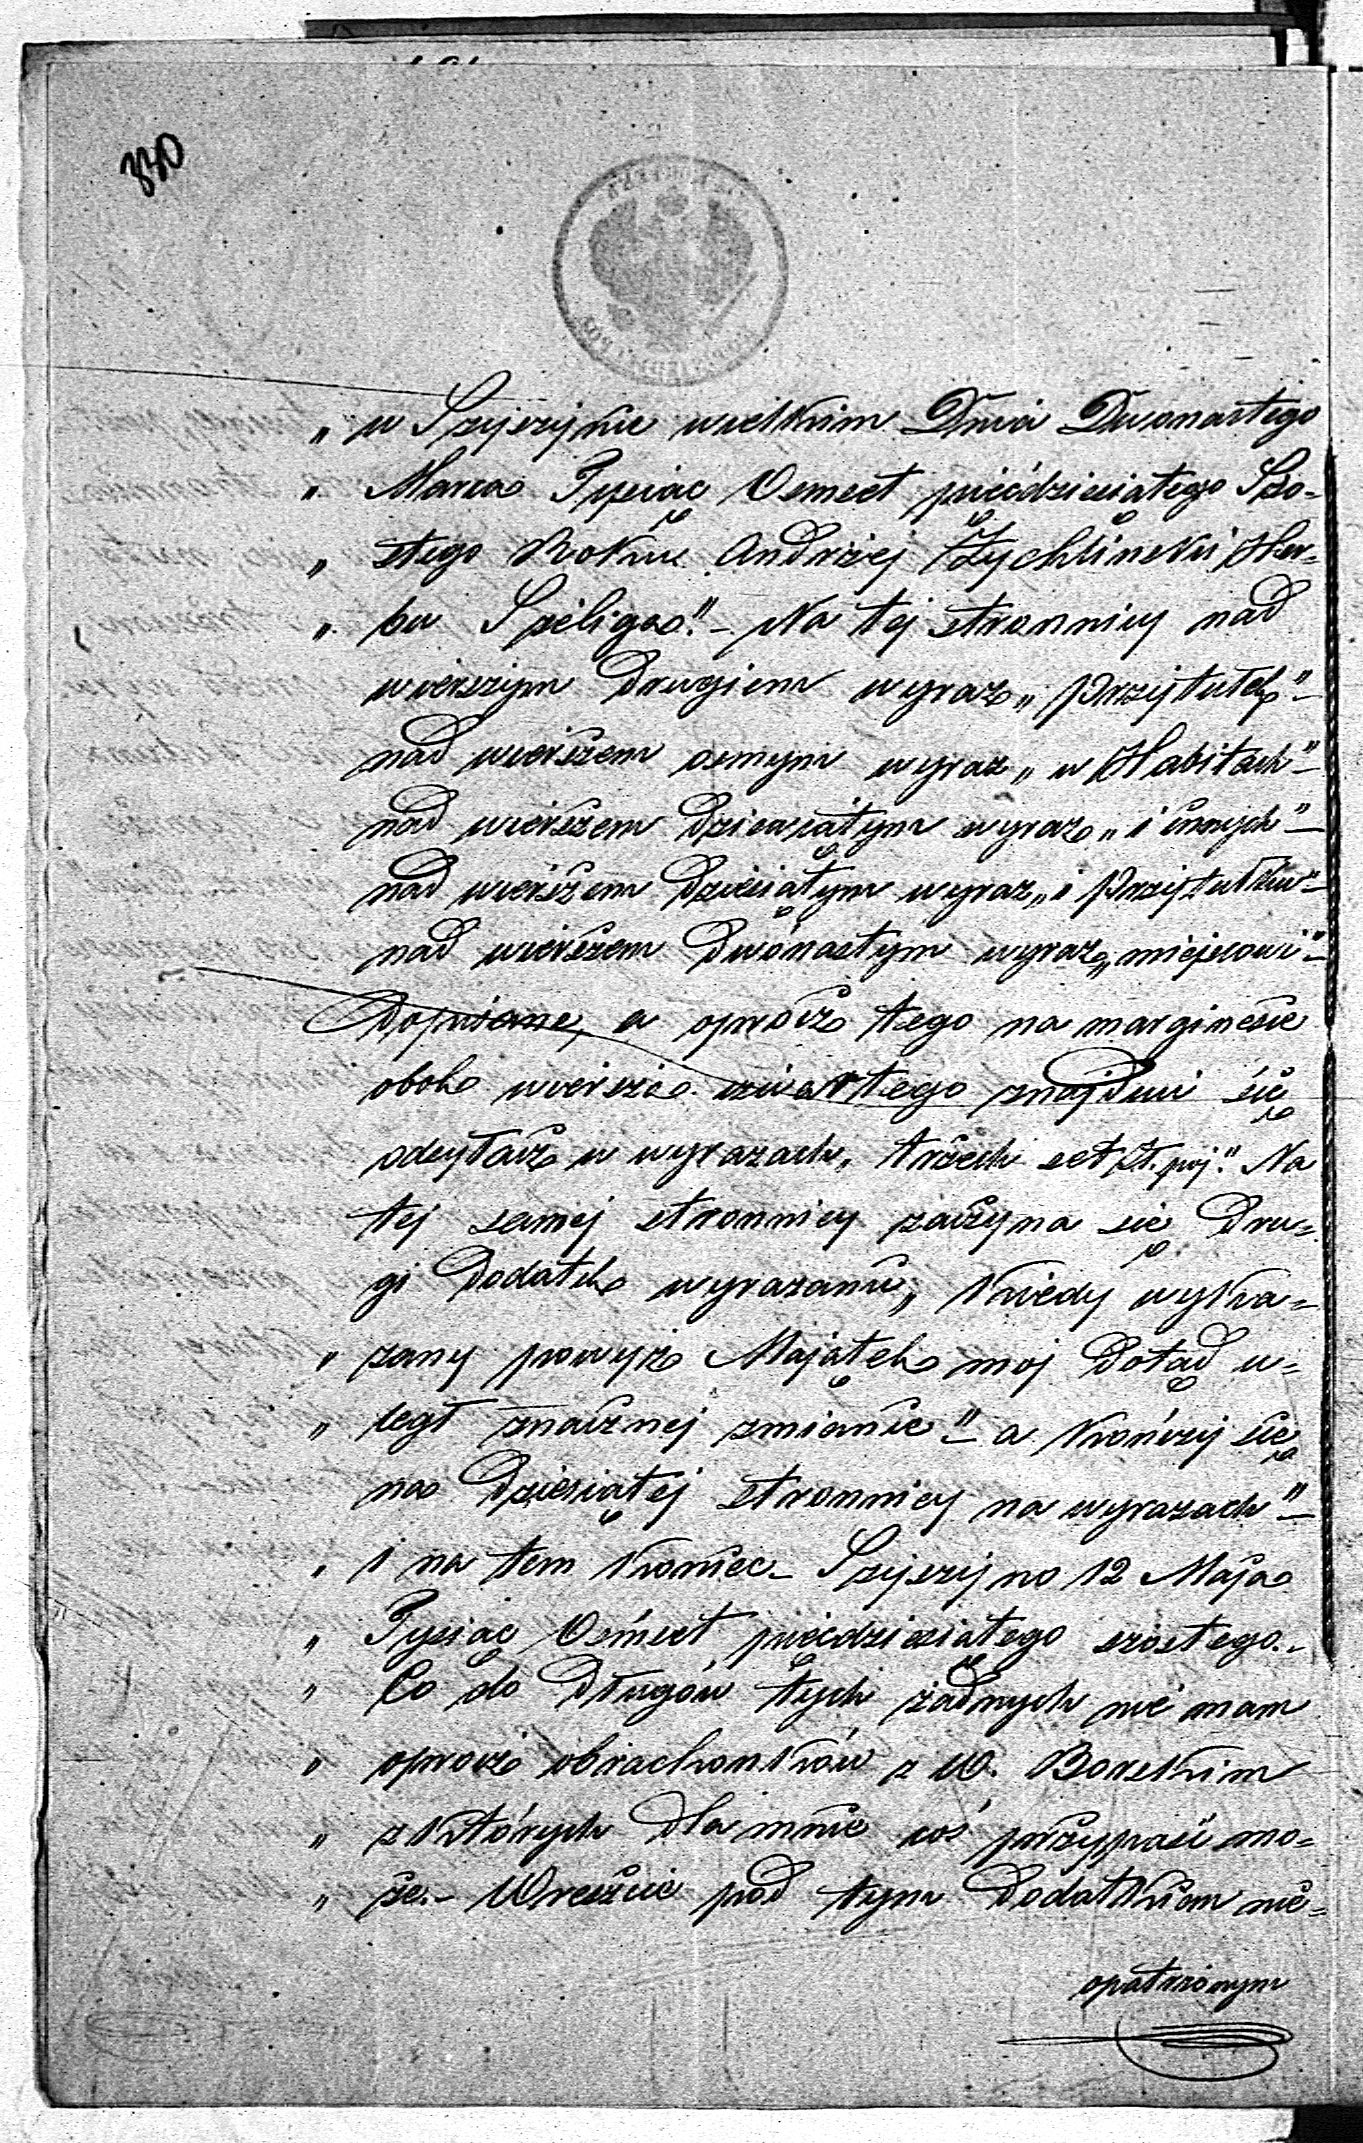 330
„ w Szyszynie wielkim Dnia Dwonastego
„ Marca Tysiąc Ośmset pięćdziesiątego Szo-
„ stego Roku Andrzej Żychliński Her-
„ bu Szeliga." – Na tej stronnicy nad
wierszym drugiem wyraz „Przytułek" –
nad wierszem osmym wyraz „w Habitach" –
nad wierszem dziewiątym wyraz „i innych" –
nad wierszem dziesiątym wyraz „i Przytułku" –
nad wierszem dwónastym wyraz „miejscowi" –
Dopisane, a oprócz tego na marginesie
obok wiersza czwartego znajduie się
odsyłacz w wyrazach „trzech set zł. pój." Na
tej samej stronnicy zaczyna się Dru-
gi Dodatek wyrazami „Kiedy wyka-
„ zany powyż Majątek moj dotąd u-
„ legł znacznej zmianie" – a kończy się
na dziesiątej stronnicy na wyrazach" –
„ i na tem koniec – Szyszyno 12 Maja
„ Tysiąc Ośmset pięćdziesiątego szóstego. –
„ Co do Długów tych żadnych nie mam
„ oprócz obrachonków z W. Borzkim
„ z których dla mnie coś przypaść mo-
„ że. – Wreszcie pod tym Dodatkiem nie-
opatrzonym